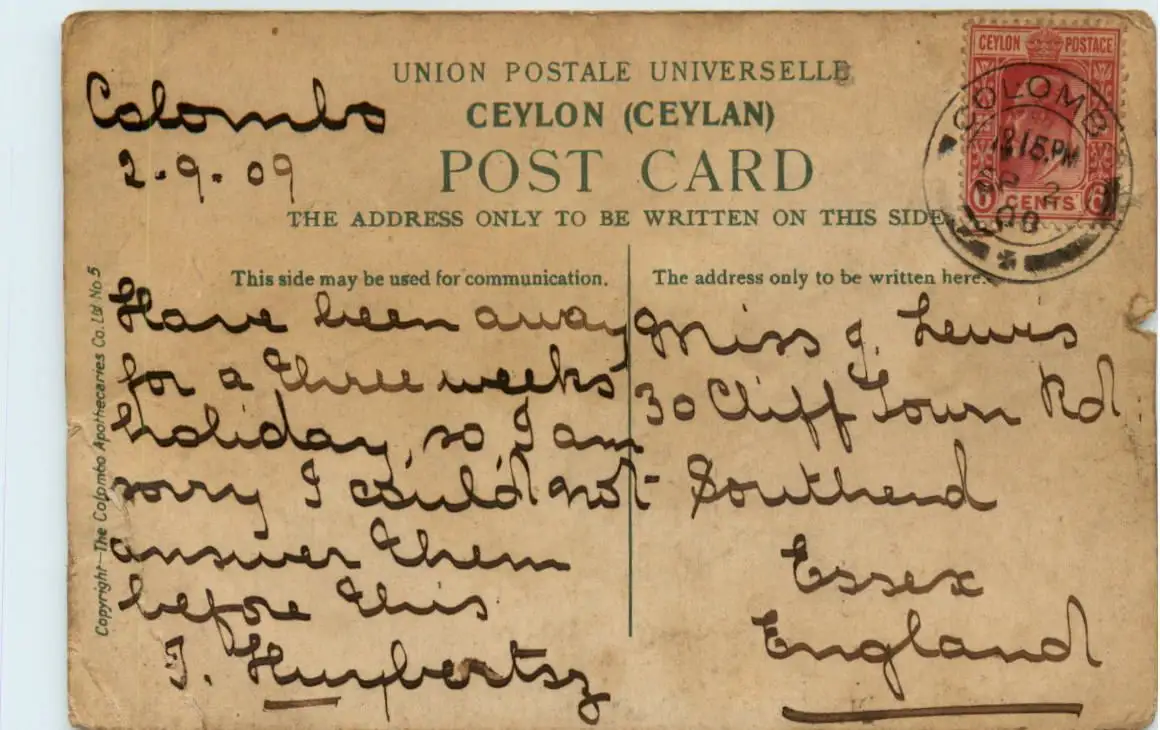 UNION POSTALE UNIVERSELLE
CEYLON (CEYLAN)
POST CARD
THE ADDRESS ONLY TO BE WRITTEN ON THIS SIDE
CEYLON POSTAGE
6 CENTS 6
COLOMBO
12 15 PM
2
09
Colombo
2-9-09
This side may be used for communication.
Have been away
for a three weeks'
holiday, so, I am
sorry I could not
answer them
before this
The address only to be written here.
Miss J. Lewis
30 Cliff Town Rd.
Southend
Essex
England
Copyright—The Colombo Apothecaries Co. Ltd No 5